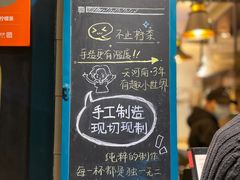 不止柠檬
手造更有温度!
天河南·3年
有趣小世界
手工制造
现切现制
纯粹的制作
每一杯都是独一无二